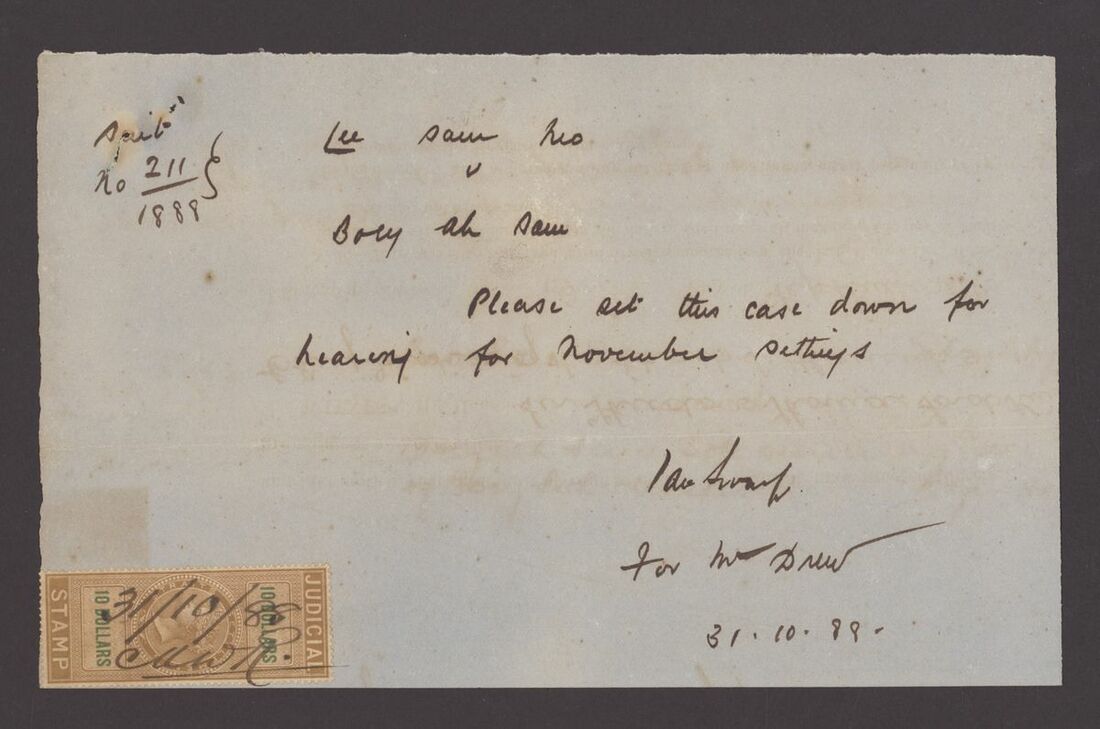 Suit
No 211
1888
Lee Sam Neo
v
Boey Ah Sam
Please set this case down for
hearing for November settings
For Mr Drew
31.10.88.
JUDICIAL
STAMP
10 DOLLARS
10 DOLLARS
31/10/88